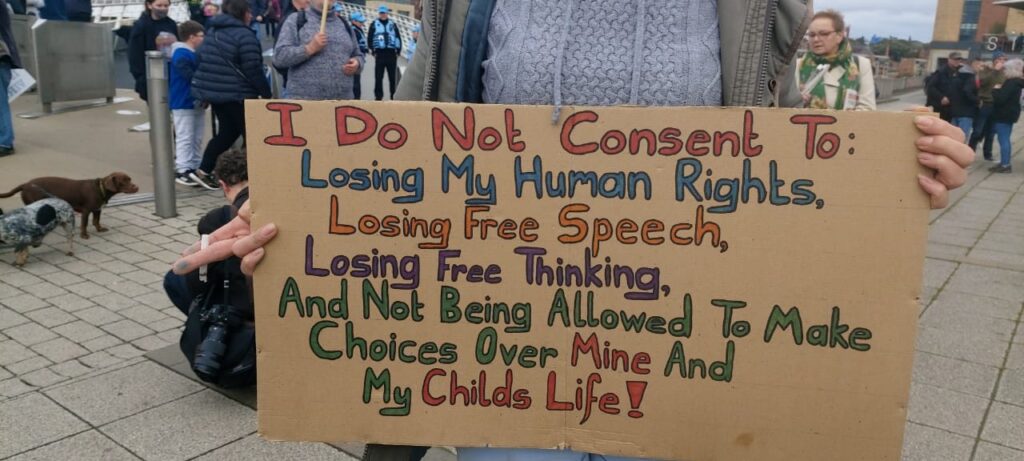 I Do Not Consent To:
Losing My Human Rights,
Losing Free Speech,
Losing Free Thinking,
And Not Being Allowed To Make
Choices Over Mine And
My Childs Life!